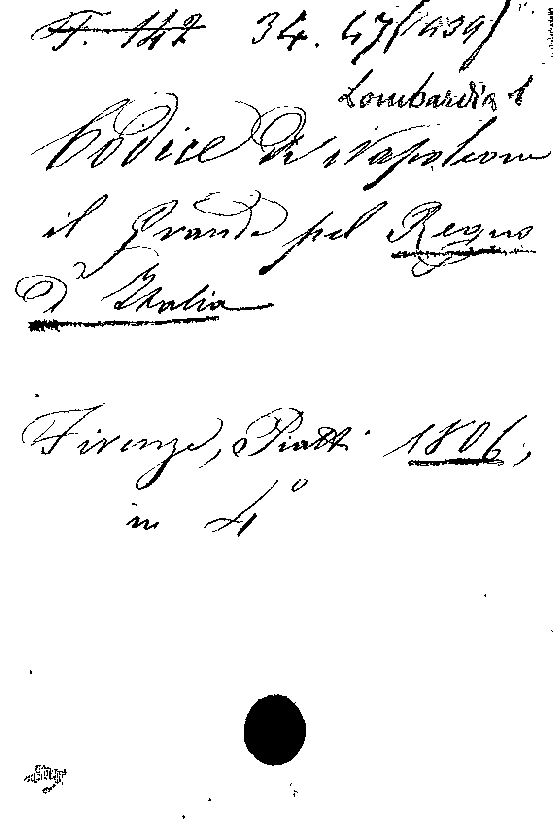 F. 142 34. 47 (439)
Lombardia 1
Codice di Napoleone
il Grande pel Regno
d'Italia
Firenze, Piatti 1806,
in 4°